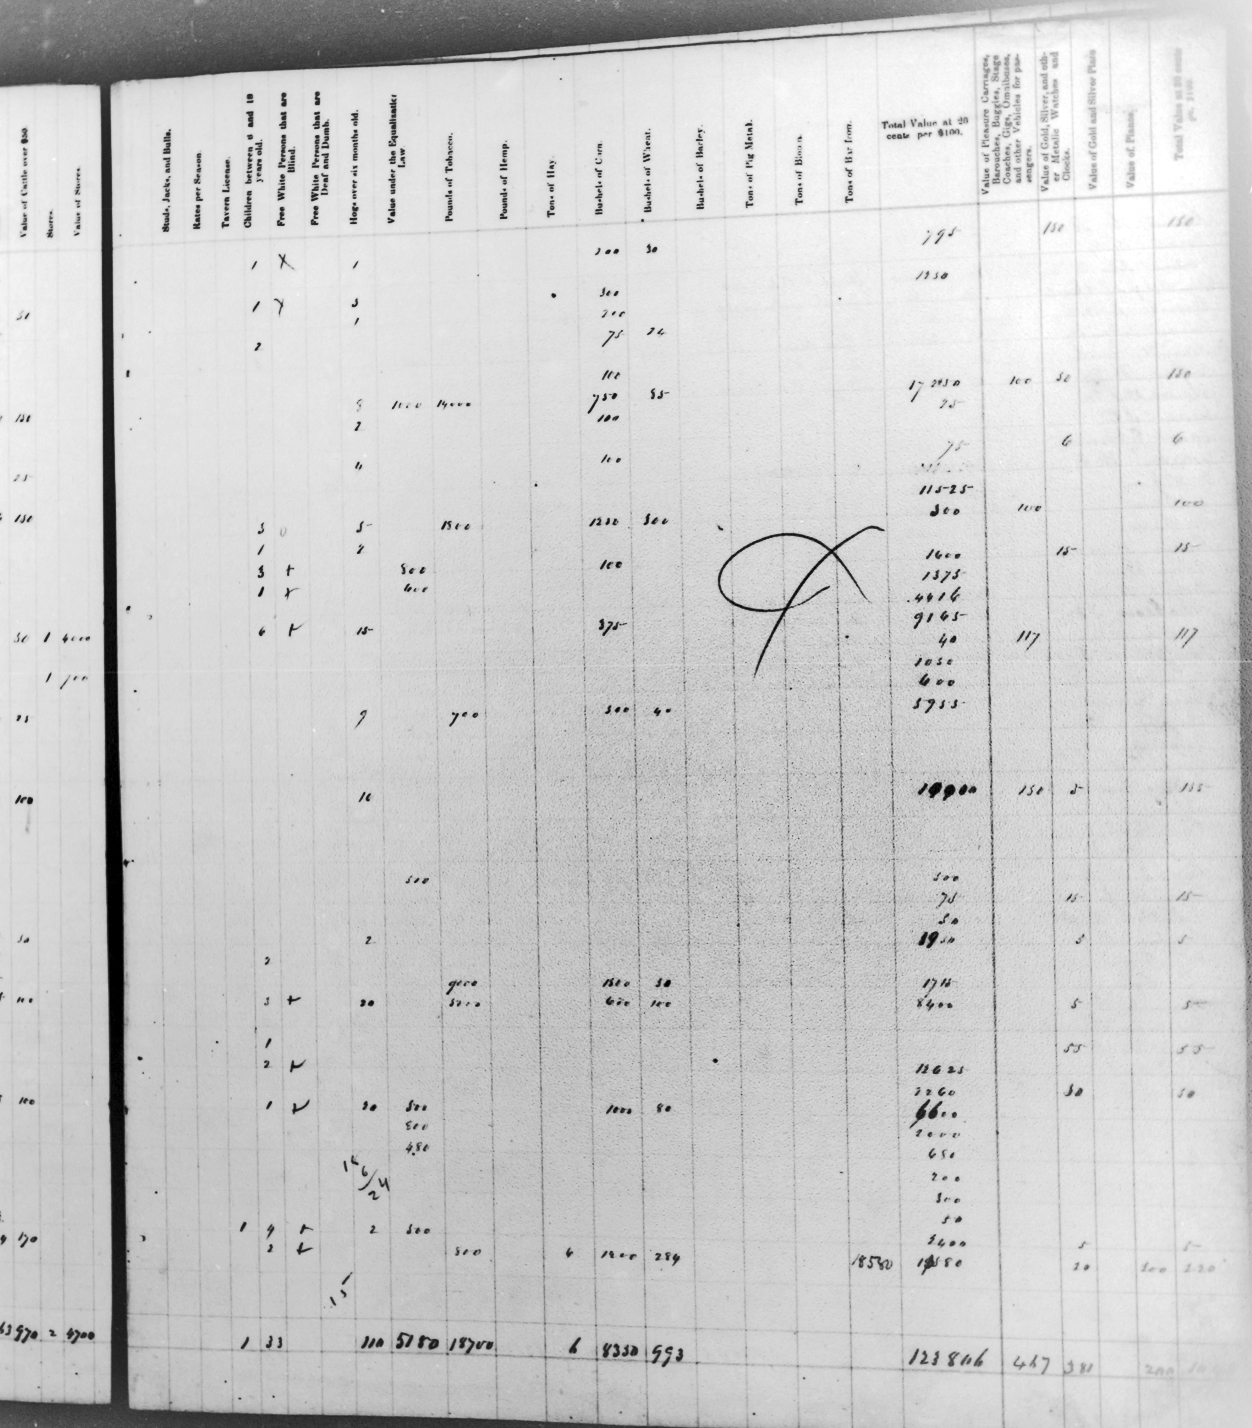 Value of Cattle over $50.
Stores.
Value of Stores.
Studs, Jacks, and Bulls.
Rates per Season.
Tavern License.
Children between 6 and 18 years old.
Free White Persons that are Blind.
Free White Persons that are Deaf and Dumb.
Hogs over six months old.
Value under the Equalization Law
Pounds of Tobacco.
Pounds of Hemp.
Tons of Hay.
Bushels of Corn.
Bushels of Wheat.
Bushels of Barley.
Tons of Pig Metal.
Tons of Bloom.
Tons of Bar Iron.
Total Value at 20 cents per $100.
Value of Pleasure Carriages, Barouches, Buggies, Stage Coaches, Gigs, Omnibuses, and other Vehicles for passengers.
Value of Gold, Silver, and other Metalic Watches and Clocks.
Value of Gold and Silver Plate
Value of Pianos.
Total Value at 30 cents
795 150 150
1 X 1 200 50
1250
1 3 300
50 1 200
75 24
2
100
17 2950 100 50 150
9 1000 14000 750 55 25
150 2 100
75 6 6
4 100
25
11525
300 100 100
150 3 5 1500 1250 300
1 2 1600 15 15
3 + 500 100 1375
1 + 400 4416
9165
50 1 4000 6 + 15 375 40 117 117
1050
1 700 600
5955
25 9 700 500 40
100 16 19900 150 5 155
500 500
75 15 15
50
50 2 1950 5 5
2
9000 1500 50 1715
100 3 + 20 5000 600 100 8400 5 5
1 55 55
2 + 12625
2260 50 50
100 1 + 20 500 1000 80 6600
500 2000
450 650
200
300
50
170 1 4 + 2 500 5400 5 5
2 + 500 6 1200 284 18580 20 200 220
15
970 2 4700 1 33 110 5180 18700 6 8350 993 467 381 200